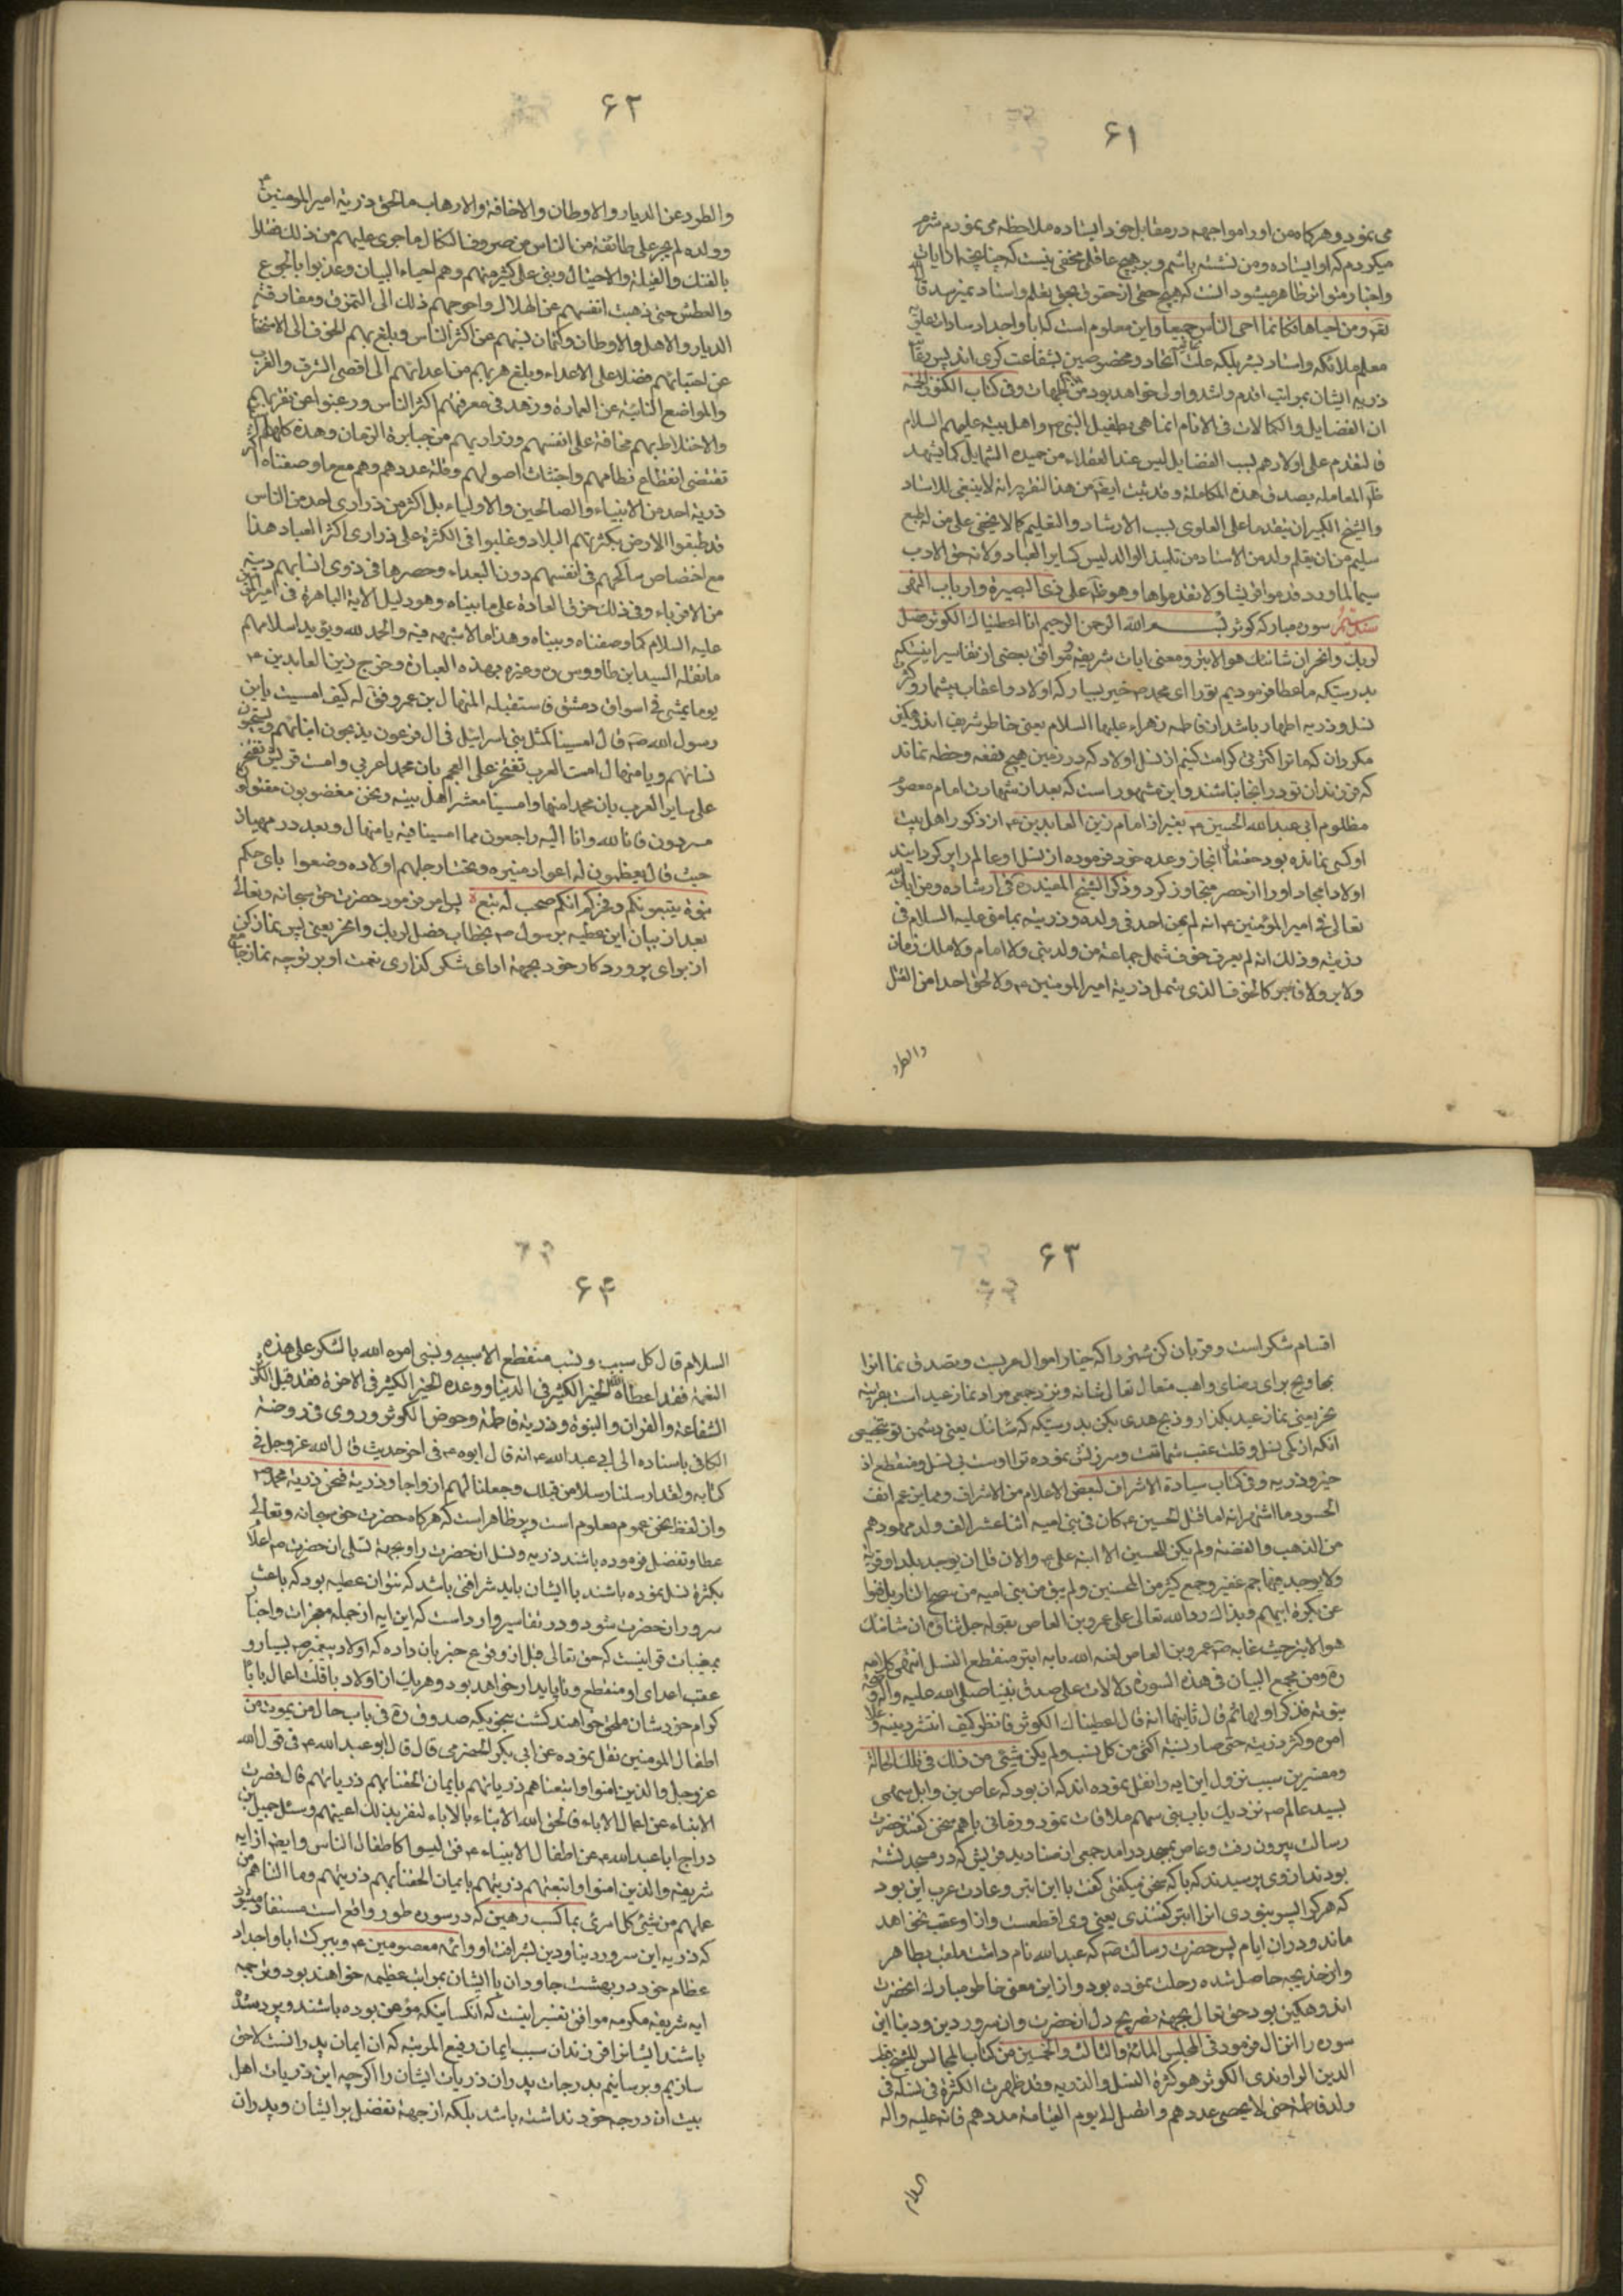 ۶۱
می نمود و هرکاه من او را مواجهه در مقابل خود ایستاده ملاحظه می نمودم شرم
میکردم که او ایستاده و من نشسته باشم و بر هیچ عاقلی مخفی نیست که چنانچه از آیات
و اخبار متواتر ظاهر میشود آنست که هیچ حقی از حقوق بحق معلم و استاد نمیرسد
و من احیاها فکانما احیی الناس جمیعا و این معلوم است که آبا و اجداد سادات
معلم ملائکه و استاد بلکه علت ایجاد و مخصوصین بشفاعت کبری اند پس
ذریه ایشان بمراتب اقدم و اشد و اولی خواهد بود و فی کتاب
ان الفضایل و الکمالات فی الانام انما هی بطفیل النبی ص و اهل بیته علیهم السلام
فالتقدم علی اولادهم بسبب الفضایل لیس عند العقلاء من حمیده الشمایل کما یشهد
المعامله بصدق هذه المکامله و قد ثبت ایضا من هذا التقریر انه لا ینبغی للاستاد
و الشیخ الکبیر ان یتقدما علی العلوی بسبب الارشاد و التعلیم کما لا یخفی علی من له طبع
سلیم من ان یعلم ولد من الاستاد من تلمیذ الوالد لیس کسایر العباد و لانه حق الادب
سیما لما ورد قدموا قریشا و لا تقدموها و هو ظاهر علی ذی البصیرة و ارباب النهی
سوره مبارکه کوثر بسم الله الرحمن الرحیم انا اعطیناك الکوثر فصل
لربك و انحر ان شانئك هو الابتر و معنی آیات شریفه موافق بعضی از تفاسیر اینستکه
بدرستیکه ما عطا فرمودیم تو را ای محمد ص خیر بسیار که اولاد و اعقاب بیشمار و
نسل و ذریه اطهار باشد از فاطمه زهراء علیها السلام یعنی خاطر شریف اندوهکین
مکردان که ما ترا اکثری کرامت کنیم از نسل اولاد که در زمین هیچ بقعه و خطه نماند
که فرزندان تو در آنجا نباشند و این مشهور است که بعد از شهادت امام معصوم
مظلوم ابی عبدالله الحسین ع بغیر از امام زین العابدین ع از ذکور اهل بیت
او کسی نمانده بود حقتعالی انجاز وعده خود فرموده از نسل او عالم را پر کردانید
اولاد امجاد او را از حصر متجاوز کرد و ذکر الشیخ المفید ره فی ارشاده و من آیات
تعالی فی امیر المؤمنین ع انه لم یمن احد فی ولده و ذریته بما منی علیه السلام فی
ذریته و ذلك انه لم یعرف خوف شمل جماعة من ولد نبی و لا امام و لا ملك زمان
و لا بر و لا فاجر کالخوف الذی شمل ذریة امیر المومنین ع و لا لحق احدا من القتل
والطرد
۶۲
و الطرد عن الدیار و الاوطان و الاخافة و الارهاب ما لحق ذریة امیر المومنین
و ولده لم یجر علی طائفة من الناس من صروف النکال ما جری علیهم من ذلك فقتلوا
بالفتك و الغیلة و الاحتیال و بنی علی کثیر منهم و هم احیاء البنیان و عذبوا بالجوع
و العطش حتی ذهبت انفسهم عن الهلاك و احوجهم ذلك الی التمزق و مفارقة
الدیار و الاهل و الاوطان و کتمان نسبهم عن اکثر الناس و بلغ بهم الخوف الی الاستخفا
عن احبائهم فضلا علی الاعداء و بلغ هربهم من اعدائهم الی اقصی الشرق و الغرب
و المواضع النائیة عن العمارة و زهد فی معرفتهم اکثر الناس و رغبوا عن تقریبهم
و الاختلاط بهم مخافة علی انفسهم و ذراریهم من جبابرة الزمان و هذه کلها
تقتضی انقطاع نظامهم و اجتثاث اصولهم و قلة عددهم و هم مع ما وصفناه
ذریة احد من الانبیاء و الصالحین و الاولیاء بل اکثر من ذراری احد من الناس
قد طبقوا الارض بکثرتهم البلاد و غلبوا فی الکثرة علی ذراری اکثر العباد هذا
مع اختصاص مناکحهم فی انفسهم دون البعداء و حصرها فی ذوی انسابهم دنیة
من الاقرباء و فی ذلك خرق العادة علی ما بیناه و هو دلیل الایة الباهرة فی امیر
علیه السلام کما وصفناه و بیناه و هذا ما لا شبهه فیه و الحمد لله و یؤید اسلامهم
ما نقله السید ابن طاووس ره و غیره بهذه العبارة و خرج زین العابدین ع
یوما یمشی فی اسواق دمشق فاستقبله المنهال بن عمرو فق له کیف امسیت یابن
رسول الله ص قال امسینا کمثل بنی اسرائیل فی آل فرعون یذبحون ابنائهم و یستحیون
نسائهم و یا منهال امست العرب تفتخر علی العجم بان محمدا عربی و امست قریش تفتخر
علی سایر العرب بان محمدا منها و امسینا معشر اهل بیته و نحن مغضوبون مقتولون
مسردون فانا لله و انا الیه راجعون مما امسینا فیه یا منهال و بعد در مهیار
حیث قال یعظمون له اعواد منبره و تحت ارجلهم اولاده وضعوا بای حکم
بنوه یتبعونکم و فخرکم انکم صحب له تبع پس امر فرمود حضرت حق سبحانه و تعالی
بعد از بیان این عطیه بر رسول ص بخطاب فصل لربك و انحر یعنی پس نماز کن
از برای پروردکار خود بجهة ادای شکر گذاری نعمت او بر توچه نماز
۶۳
اقسام شکر است و قربان کن شتر را که خیار اموال عربست و تصدق نما آنرا
بمحاویج برای رضای واهب متعال تعالی شانه و نزد جمعی مراد نماز عید است بقرینه
نحر یعنی نماز عید بگذار و ذبح هدی بکن بدرستیکه که شانئك یعنی دشمن تو
آنکه از کی نسل و قلت عقب شماتت و سرزنش نموده تو را اوست بی نسل و منقطع از
خیر و ذریه و فی کتاب سیادة الاشراف لبعض الاعلام من الاشراف و مما یرغم انف
الحسود ما اشتهر انه لما قتل الحسین ع کان فی بنی امیه اثنا عشر الف ولد مهودهم
من الذهب و الفضة و لم یکن للحسین الا ابنه علی ع و الان قل ان یوجد بلد او قریة
و لا یوجد منها جم غفیر و جمع کثیر من الحسنیین و لم یبق من بنی امیه من
عن بکرة ابیهم و بذاك رد الله تعالی علی عمرو بن العاص بقوله جل ثناؤه ان شانئك
هو الابتر حیث عابه ص عمرو بن العاص لعنه الله بانه ابتر منقطع النسل انتهی کلامه
ره و من مجمع البیان فی هذه السورة دلالات علی صدق نبینا صلی الله علیه و اله
نبوته فذکر اولها ثم قال ثانیها انه قال اعطیناك الکوثر فانظر کیف انتشر دینه و علا
امره و کثر ذریته حتی صار نسبه اکثر من کل نسب و لم یکن شیئی من ذلك فی تلك الحالة
و مفسرین سبب نزول این آیه را نقل نموده اند که آن بود که عاص بن وایل سهمی
بسید عالم ص نزدیك باب بنی سهم ملاقات نمود و زمانی باهم سخن گفتند حضرت
رسالت بیرون رفت و عاص بمسجد درآمد جمعی از صنادید قریش که در مسجد نشسته
بودند از وی پرسیدند که با که سخن میکفتی کفت با این ابتر و عادت عرب این بود
که هر کرا پسر نبودی آنرا ابتر کفتندی یعنی وی اقطعست و از او عقب نخواهد
ماند و در آن ایام پسر حضرت رسالت ص که عبدالله نام داشت ملقب بطاهر
و از خدیجه حاصل شده رحلت نموده بود و از این معنی خاطر مبارك آنحضرت
اندوهکین بود حق تعالی بجهة تفریح دل آن حضرت و آن سرور دین و دنیا این
سوره را انزال فرمود فی المجلس المائة و الثالث و الخمسین من کتاب المجالس للشیخ
الدین الراوندی الکوثر هو کثرة النسل و الذریه و قد ظهرت الکثرة فی نسله فی
ولد فاطمة حتی لا یحصی عددهم و اتصل الی یوم القیامة مددهم فانه علیه و اله
السلام
۶۴
السلام قال کل سبب و نسب منقطع الا سببی و نسبی امره الله بالشکر علی هذه
النعمة فقد اعطاه الله الخیر الکثیر فی الدنیا و وعده الخیر الکثیر فی الاخرة فقد قیل
الشفاعة و القران و النبوة و ذریة فاطمة و حوض الکوثر و روی فی روضة
الکافی باسناده الی ابی عبد الله ع انه قال ابوه ع فی اخر حدیث قال الله عز و جل فی
کتابه و لقد ارسلنا رسلا من قبلك و جعلنا لهم ازواجا و ذریة فنحن ذریة محمد ص
و از لفظ نحن عموم معلوم است و پر ظاهر است که هرکاه حضرت حق سبحانه و تعالی
عطا و تفضل فرموده باشند ذریه و نسل آن حضرت را و بجهة تسلی آن حضرت ص
بکثرة نسل نموده باشند با ایشان باید شرافتی باشد که بتوان عطیه بود که باعث
سرور آن حضرت شود و در تفاسیر وارد است که این آیه از جمله معجزات و اخبار
بمغیبات قرآنیست که حق تعالی قبل از وقوع خبر بآن داده که اولاد پیغمبر ص بسیار و
عقب اعدای او منقطع و ناپایدار خواهد بود و هر یك از اولاد با قلت اعمال
کرام خودشان ملحق خواهند کشت بنحویکه صدوق ره فی باب حال من یموت من
اطفال المومنین نقل نموده عن ابی بکر الحضرمی قال قال ابو عبدالله ع فی قول الله
عز و جل و الذین امنوا و اتبعناهم ذریاتهم بایمان الحقنا بهم ذریاتهم قال قصرت
الابناء عن اعمال الاباء فالحق الله الابناء بالاباء لتقر بذلك اعینهم و سئل جمیل بن
دراج ابا عبدالله ع عن اطفال الانبیاء ع فق لیسوا کاطفال الناس و ایضا از آیه
شریفه و الذین امنوا و اتبعتهم ذریتهم بایمان الحقنا بهم ذریتهم و ما التناهم من
عملهم من شیئی کل امرئ بما کسب رهین که در سوره طور واقع است مستفاد میشود
که ذریه این سرور دنیا و دین بشرافت او و ائمه معصومین ع و ببرکت ابا و اجداد
عظام خود در بهشت جاودان با ایشان بمراتب عظیمه خواهند بود و ترجمه
آیه شریفه مکرمه موافق تفسیر اینست که آنکسانیکه مؤمن بوده باشند و
باشند ایشانرا فرزندان سبب ایمان رفیع المرتبه که آن ایمان پدرانست لاحق
سازیم و برسانیم بدرجات پدران ذریات ایشان را اگر چه این ذریات اهل
بیت آن درجه خود نداشته باشد بلکه از جهة تفضل بر ایشان و پدران